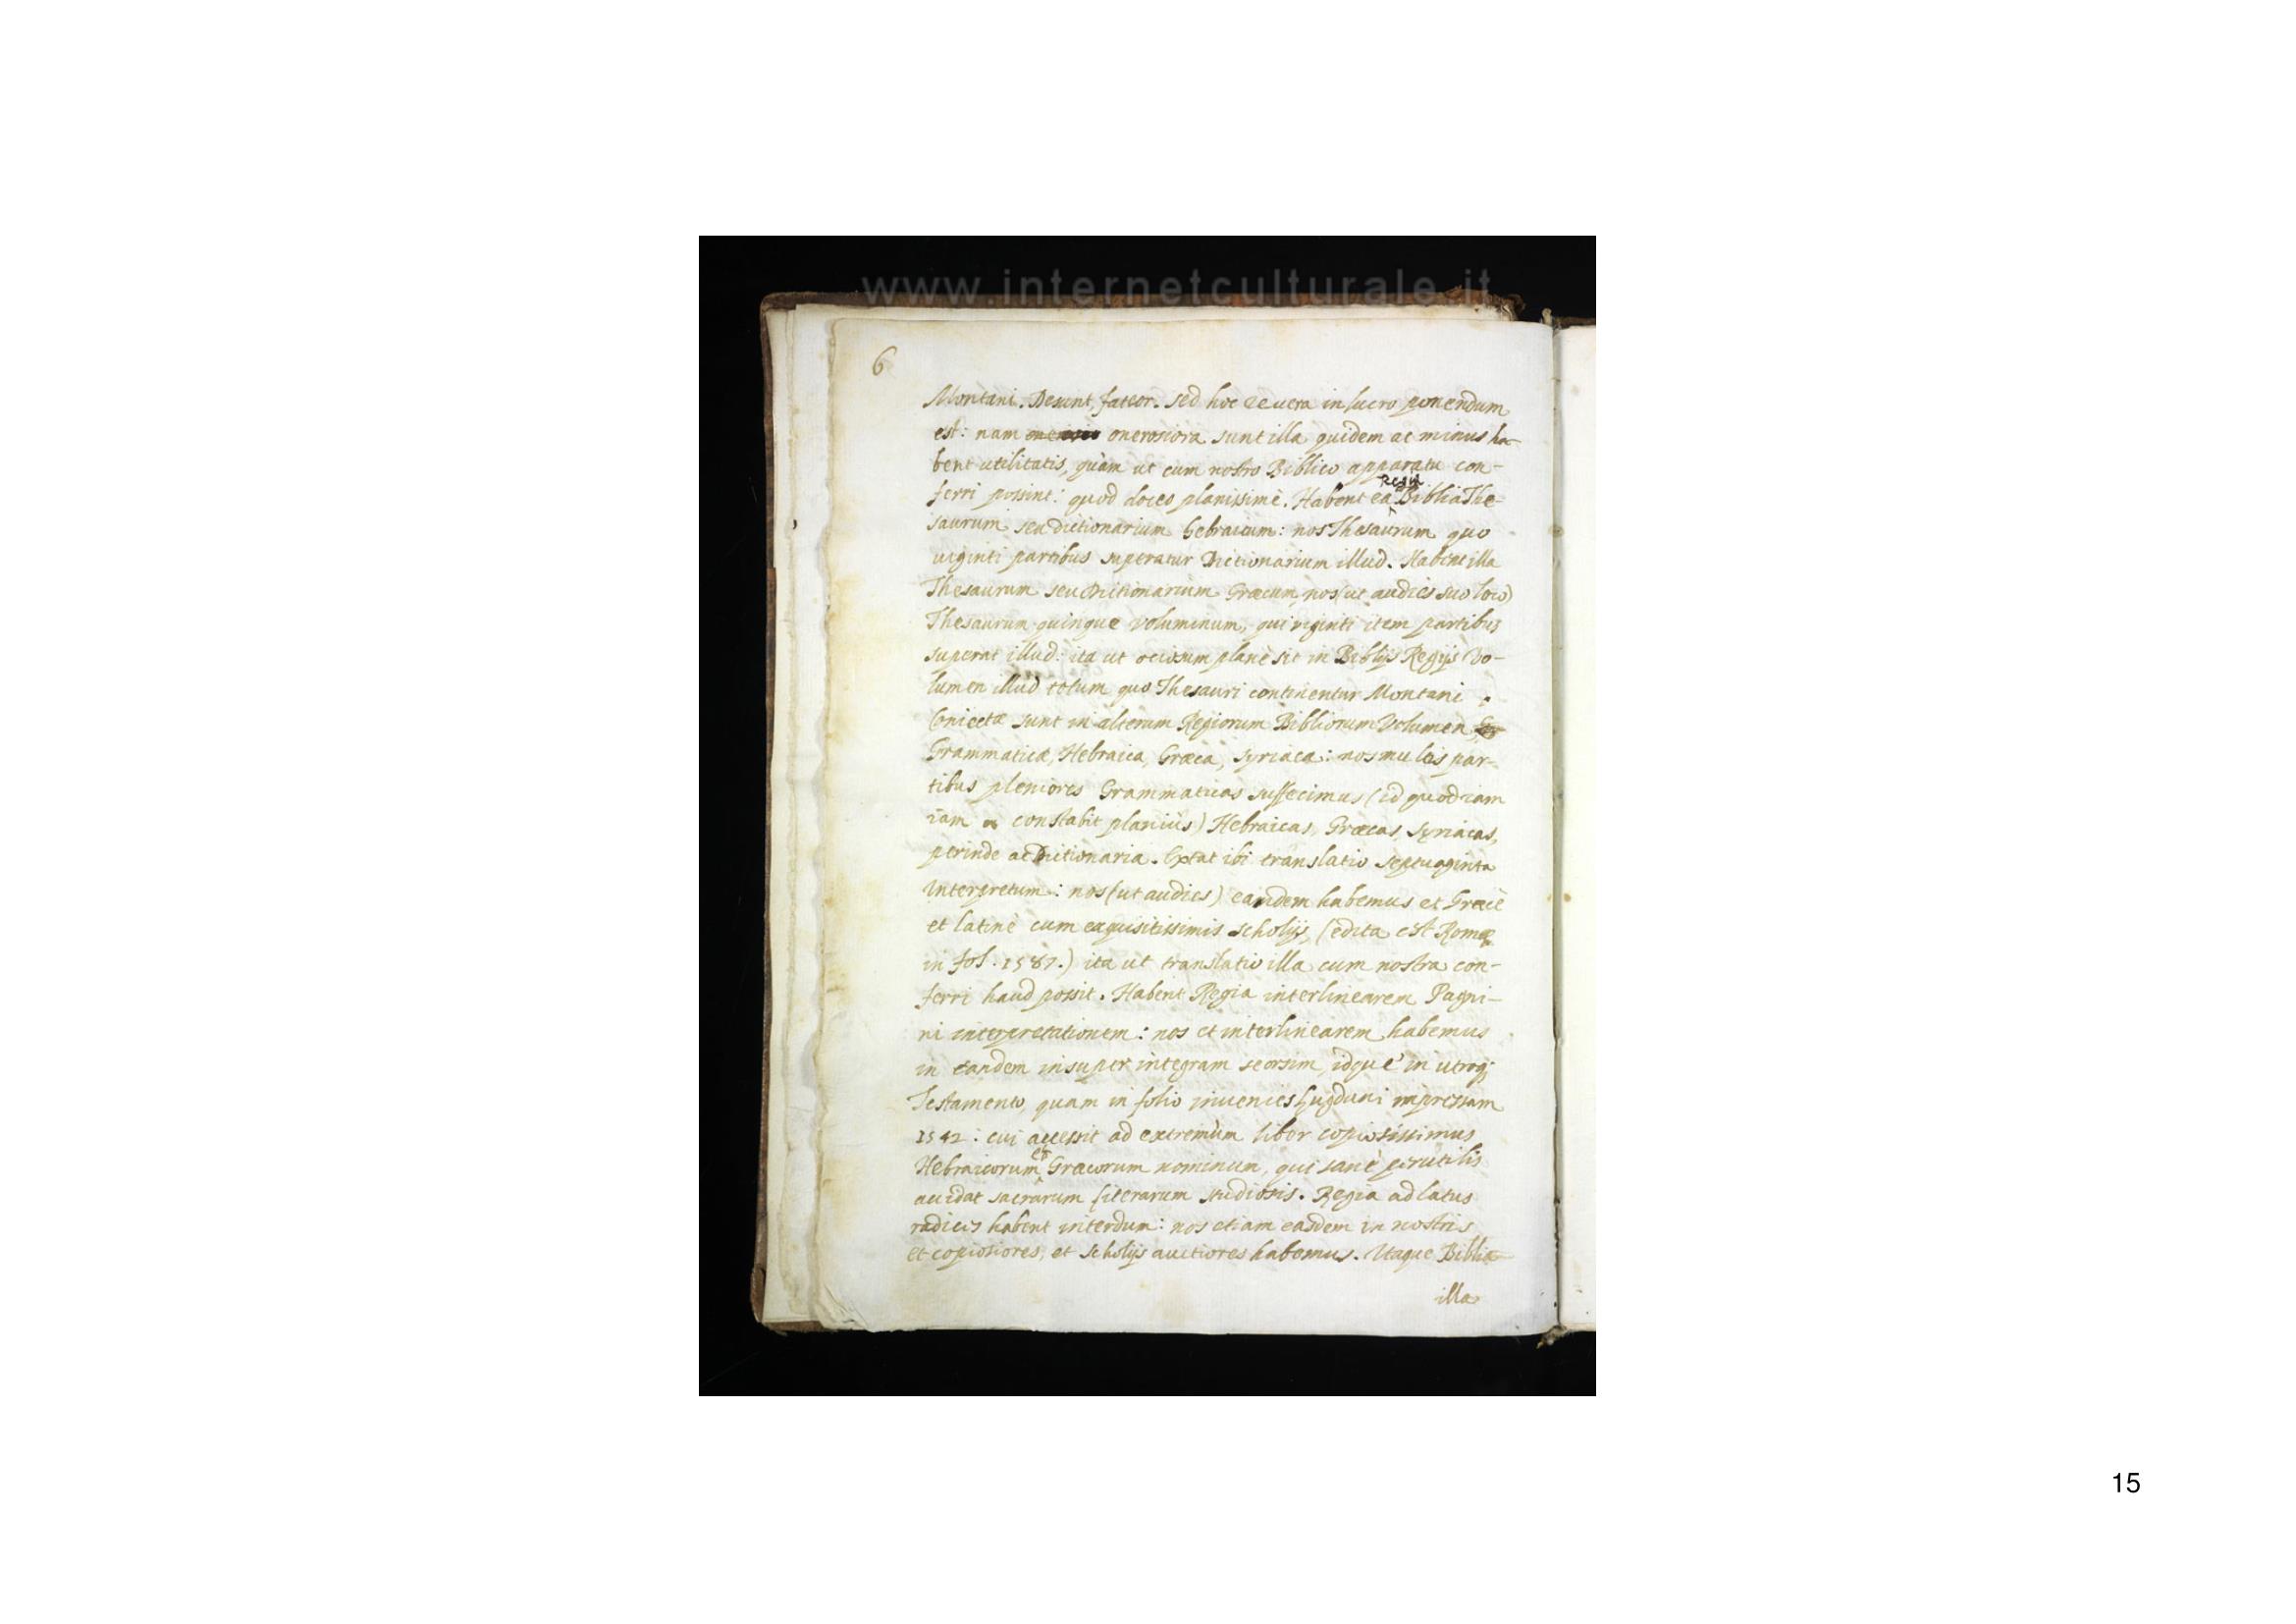 www.internetculturale.it
6
Montani. Desunt, fateor. sed hoc revera in lucro ponendum
est: nam onerosiora sunt illa quidem ac minus ha-
bent utilitatis, quàm ut cum nostro Biblico apparatu con-
ferri possint: quod doceo planissimè. Habent ea Regia Biblia The-
saurum seu dictionarium hebraicum: nos Thesaurum quo
viginti partibus superatur Dictionarium illud. Habent illa
Thesaurum seu Dictionarium Græcum, nos (ut audies suo loco)
Thesaurum quinque voluminum, qui viginti item partibus
superat illud: ita ut ociosum planè sit in Biblijs Regijs Vo-
lumen illud totum quo Thesauri continentur Montani.
Coniectæ sunt in alterum Regiorum Bibliorum Volumen
Grammaticæ, Hebraica, Græca, Syriaca: nos multis par-
tibus pleniores Grammaticas suffecimus (id quod iam
iam constabit planiùs) Hebraicas, Græcas, Syriacas,
perinde ac Dictionaria. Extat ibi translatio septuaginta
Interpretum: nos (ut audies) eamdem habemus et Græcè
et latinè cum exquisitissimis scholijs, (edita est Romæ
in fol. 1587.) ita ut translatio illa cum nostra con-
ferri haud possit. Habent Regia interlinearem Pagni-
ni interpretationem: nos et interlinearem habemus
in eandem insuper integram seorsim, idque in utroq;
Testamento, quam in folio invenies Lugduni impressam
1542: cui accessit ad extremùm liber copiosissimus
Hebraicorum et Græcorum nominum, qui sanè perutilis
accidat sacrarum literarum studiosis. Regia ad latus
radices habent interdum: nos etiam easdem in nostris
et copiosiores, et scholijs auctiores habemus. Itaque Biblia
illa
15